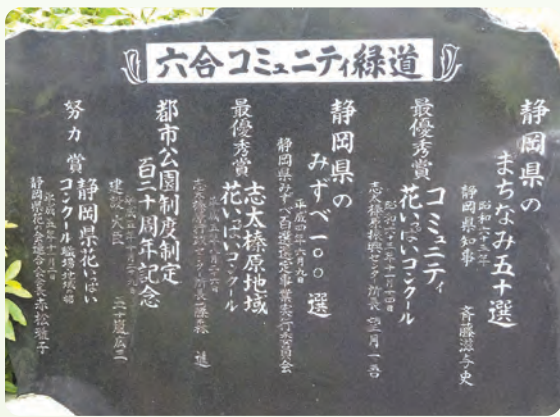 六合コミュニティ緑道
静岡県の
まちなみ五十選
昭和六十三年
静岡県知事 斉藤滋与史
最優秀賞 コミュニティ
花いっぱいコンクール
昭和六十三年十一月十四日
志太榛原振興センター所長
静岡県の
みずべ一〇〇選
平成四年八月九日
静岡県みずべ百選選定事業実行委員会
最優秀賞 志太榛原地域
花いっぱいコンクール
都市公園制度制定
百二十周年記念
建設大臣 五十嵐広三
努力賞 静岡県花いっぱい
コンクール 職場地域の部
静岡県花の会連合会会長 赤松雅子